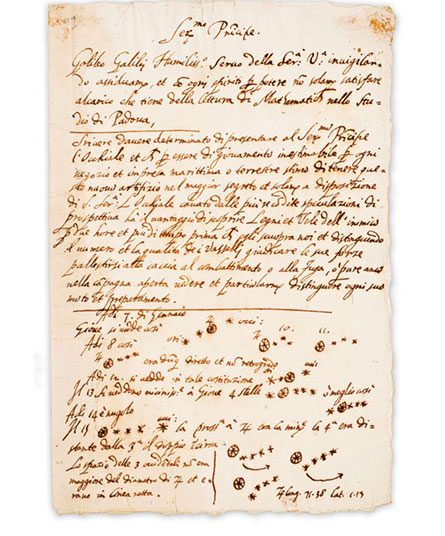 Ser.mo Prīcipe.
Galileo Galilej Humilis.o Servo della Ser.a V.a invigilan-
do assiduam.te, et cō ogni spirito ꝑ potere nō solam.te satisfare
al carico che tiene della lettura di Mathematica nello Stu-
dio di Padova,
Scrive d'avere determinato di presentare al Ser.mo Prīcipe
l'Ochiale et ꝑ essere di giovamento inestimabile ꝑ ogni
negozio et impresa marittima o terrestre stima di tenere que-
sto nuovo artifizio nel maggior segreto et solam.te a disposizione
di S. Ser.a L'Ochiale cavato dalle più recōdite speculazioni di
prospettiva ha il vantaggio di scoprire Legni et Vele dell'inimico
ꝑ due hore et più di tempo prima ch'egli scuopra noi et distinguendo
il numero et la qualità dei Vasselli giudicare le sue forze
pallestirsi alla caccia al combattimento o alla fuga, o pure anco
nella cāpagna aperta vedere et particolarm.te distinguere ogni suo
moto et preparamento.
Adì 7. di Gennaio
Giove si vede così
Adì 8 così
era dūq diretto et nō retrogrado
Adì 12. si vedde in tale costituzione
Il 13 si veddono vicinis.e a Giove 4 stelle ò meglio così
Adì 14 è nugolo
Il 15 la pross.a a ♃ era la min.e la 4.a era di-
stante dalla 3.a il doppio īcirca
Lo spazio delle 3 occidētali nō era
maggiore del diametro di ♃ et e-
rano in linea retta.
♃ long. 71.38 lat. 1.13